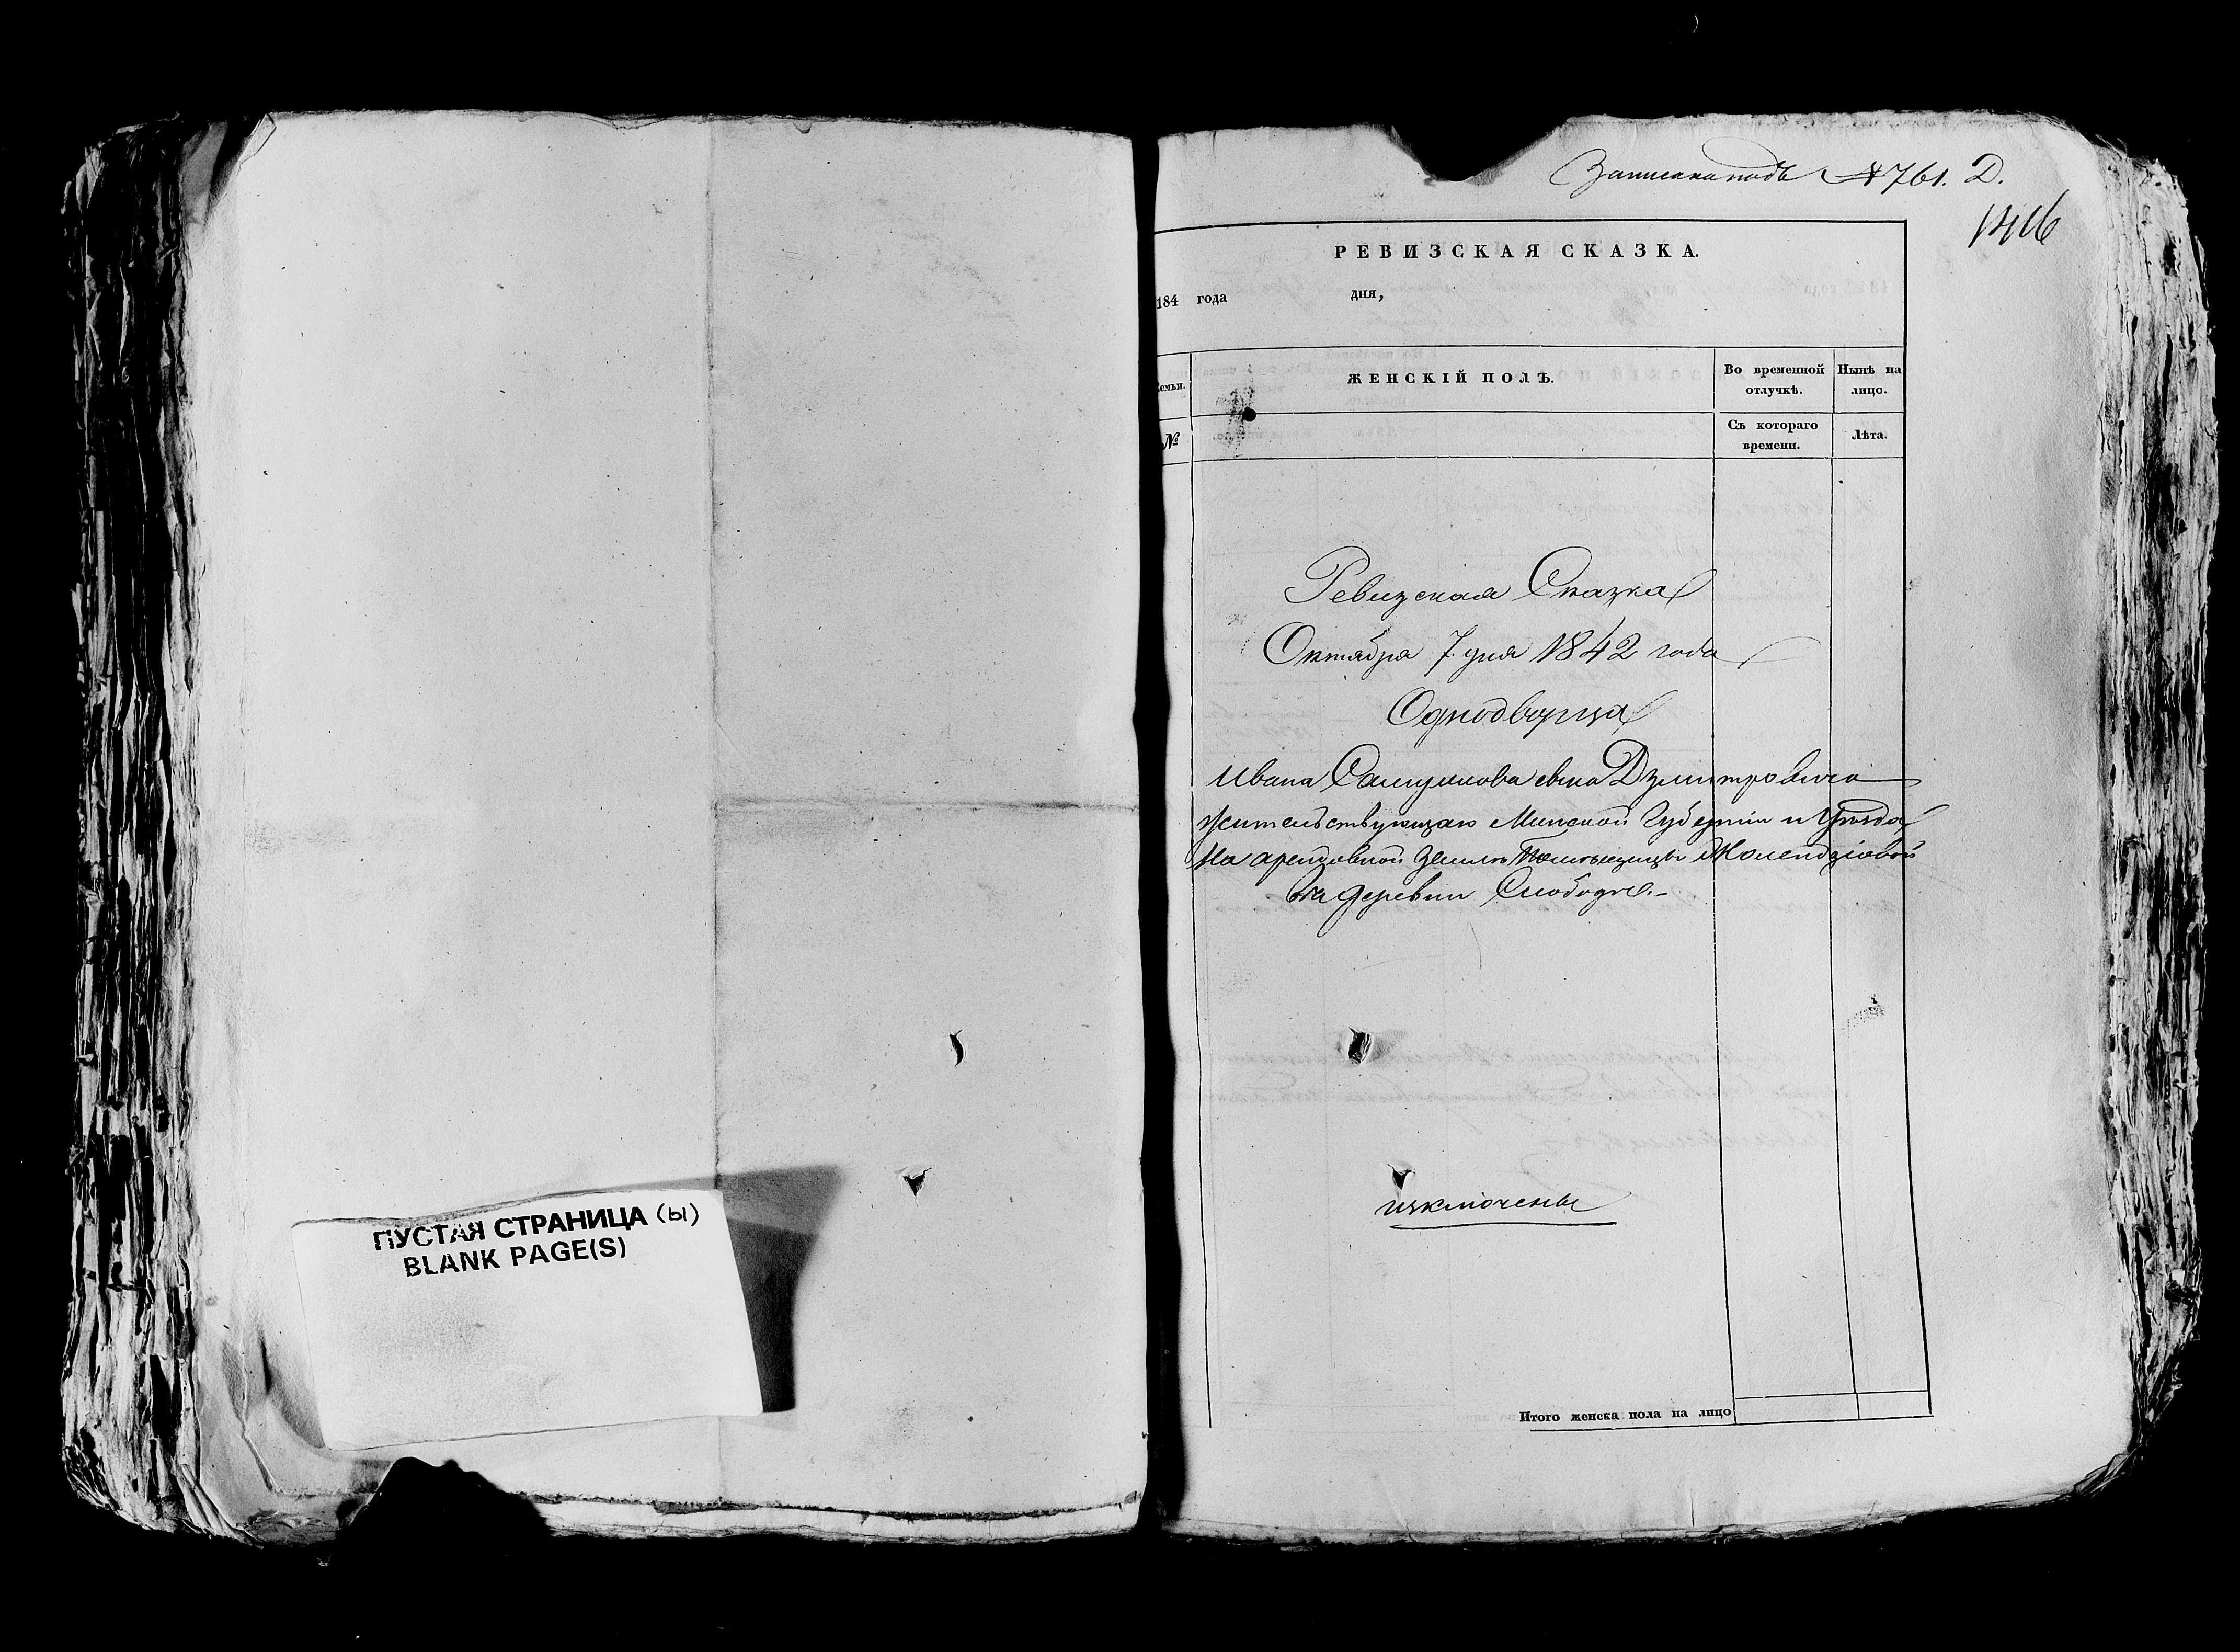 ПУСТАЯ СТРАНИЦА (ы)
BLANK PAGE(S)
Записана подъ №761. Д.
РЕВИЗСКАЯ СКАЗКА.
184 года дня,
семьи. ЖЕНСКІЙ ПОЛЪ. Во временной отлучкѣ. Нынѣ на лицо.
№ Съ котораго времени. Лѣта.
Ревизская Сказка
Октября 7. дня 1842 года
Однодворца
Ивана Самуилова сына Дзмитровича
жительствующаго Минской Губерніи и Уѣзда
На арендовной Землѣ Помѣщицы
въ деревни Слободзе.-
изключены
Итого женска пола на лицо